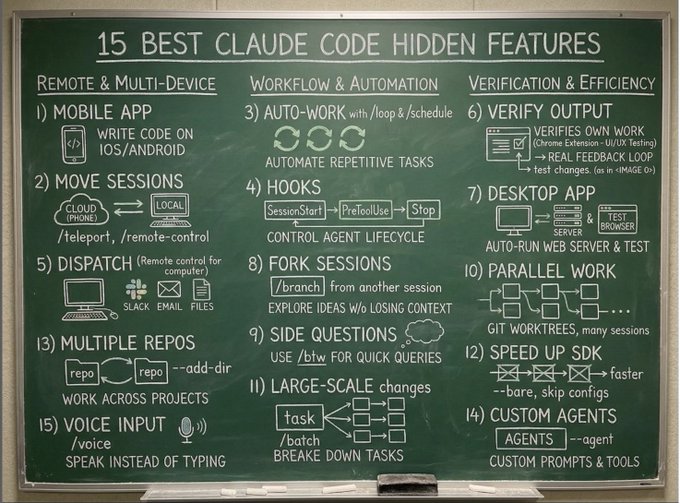 15 BEST CLAUDE CODE HIDDEN FEATURES
REMOTE & MULTI-DEVICE
1) MOBILE APP
</>
WRITE CODE ON
IOS/ANDROID
2) MOVE SESSIONS
CLOUD
(PHONE)
LOCAL
/teleport, /remote-control
5) DISPATCH (Remote control for
computer)
SLACK EMAIL FILES
13) MULTIPLE REPOS
repo repo --add-dir
WORK ACROSS PROJECTS
15) VOICE INPUT
/voice
SPEAK INSTEAD OF TYPING
WORKFLOW & AUTOMATION
3) AUTO-WORK with /loop & /schedule
AUTOMATE REPETITIVE TASKS
4) HOOKS
SessionStart PreToolUse Stop
CONTROL AGENT LIFECYCLE
8) FORK SESSIONS
/branch from another session
EXPLORE IDEAS W/o LOSING CONTEXT
9) SIDE QUESTIONS
USE /btw FOR QUICK QUERIES
11) LARGE-SCALE changes
task
/batch
BREAK DOWN TASKS
VERIFICATION & EFFICIENCY
6) VERIFY OUTPUT
VERIFIES OWN WORK
(Chrome Extension - UI/UX Testing)
→ REAL FEEDBACK LOOP
test changes. (as in <IMAGE 0>)
7) DESKTOP APP
SERVER & TEST
BROWSER
AUTO-RUN WEB SERVER & TEST
10) PARALLEL WORK
GIT WORKTREES, many sessions
12) SPEED UP SDK
faster
--bare, skip configs
14) CUSTOM AGENTS
AGENTS --agent
CUSTOM PROMPTS & TOOLS